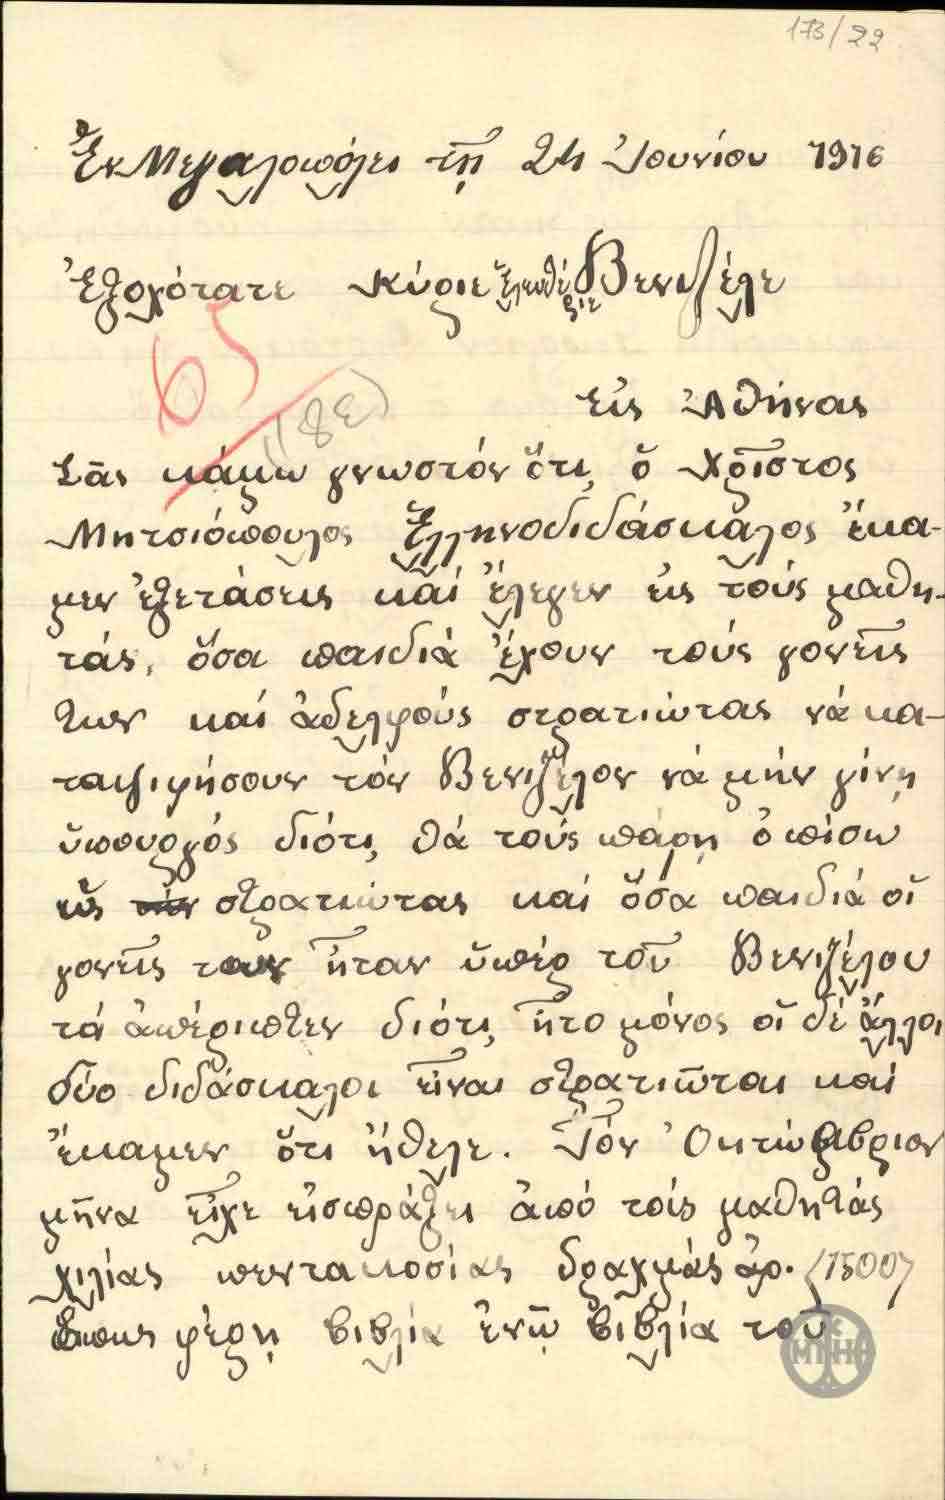 173/22
Ἐν Μεγαλοπόλει τῇ 24 Ἰουνίου 1916
Ἐξοχότατε Κύριε Ἐλευθέριε Βενιζέλε
65
(38)
Εἰς Ἀθήνας
Σᾶς κάμω γνωστόν ὅτι, ὁ Χρῖστος
Μητσιόπουλος Ἑλληνοδιδάσκαλος ἔκα-
μεν ἐξετάσεις καί ἔλεγεν εἰς τούς μαθη-
τάς, ὅσα παιδιά ἔχουν τούς γονεῖς
των καί ἀδελφούς στρατιώτας νά κα-
ταψιφήσουν τόν Βενιζέλον νά μήν γίνῃ
ὑπουργός διότι, θά τούς πάρῃ ὀπίσω
εἰς τόν στρατιώτας καί ὅσα παιδιά οἱ
γονεῖς των ἦταν ὑπέρ τοῦ Βενιζέλου
τά ἀπέριπτεν διότι, ἦτο μόνος οἱ δέ ἄλλοι
δύο διδάσκαλοι εἶναι στρατιῶται καί
ἔκαμεν ὅτι ἤθελε. Τόν Ὀκτώβριον
μῆνα εἶχε εἰσπράξει ἀπό τοίς μαθητάς
χιλίας πεντακοσίας δραχμάς ἀρ. (1500)
ὅπως φέρῃ βιβλία ἐνῷ βιβλία τοῦ